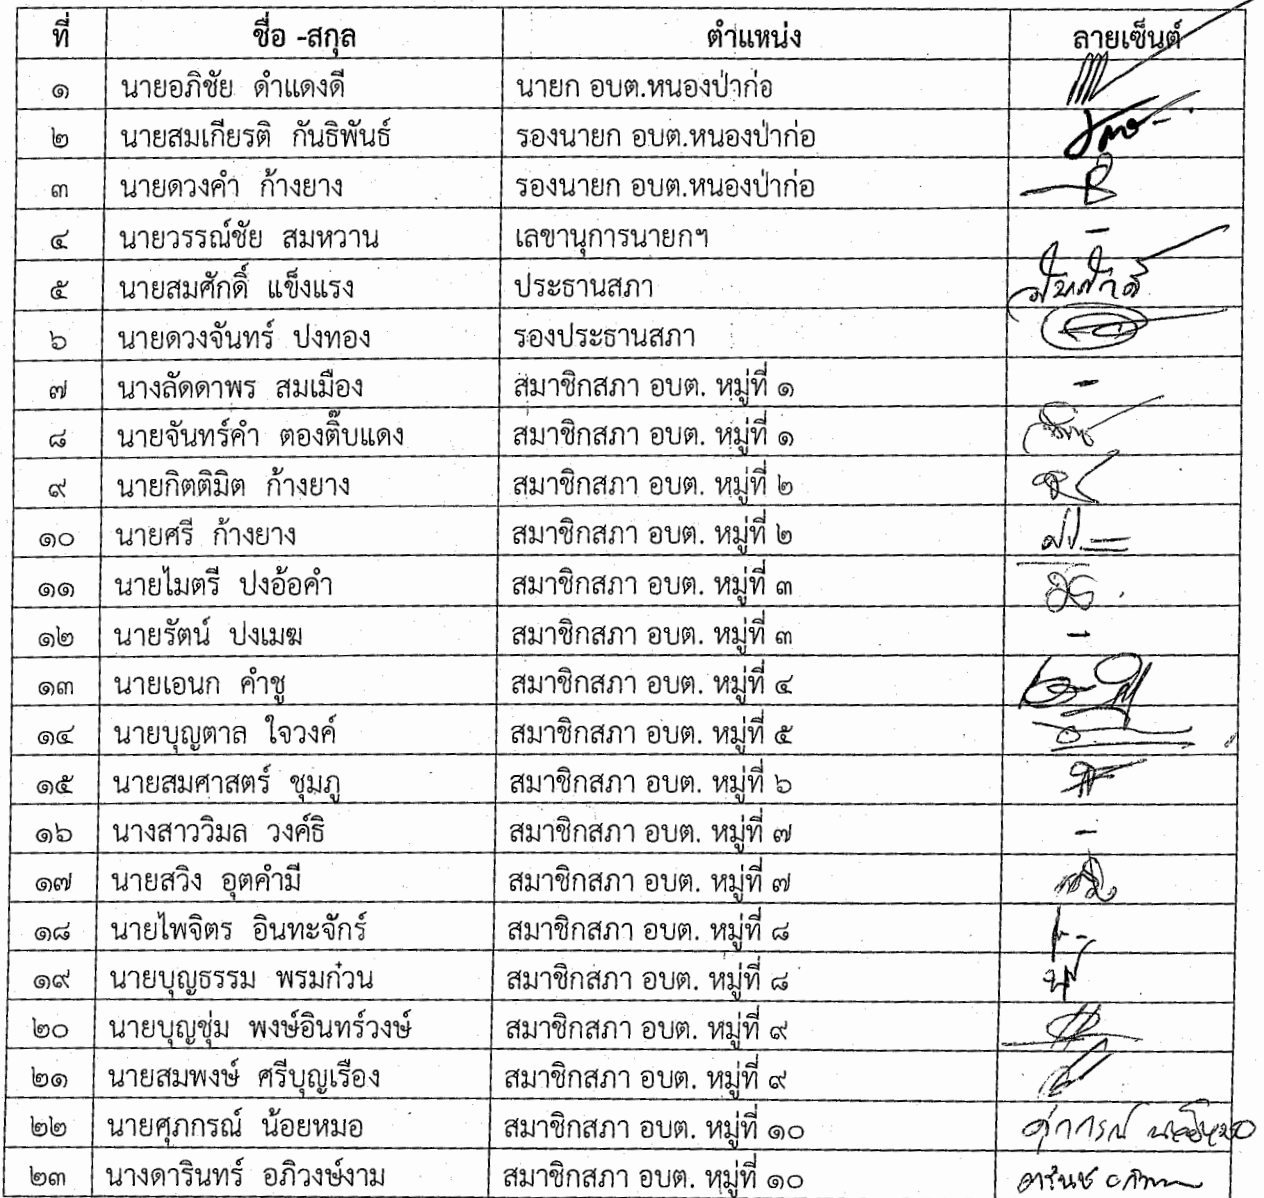 ที่ ชื่อ -สกุล ตำแหน่ง ลายเซ็นต์
๑ นายอภิชัย ดำแดงดี นายก อบต.หนองป่าก่อ
๒ นายสมเกียรติ กันธิพันธ์ รองนายก อบต.หนองป่าก่อ
๓ นายดวงคำ ก้างยาง รองนายก อบต.หนองป่าก่อ
๔ นายวรรณ์ชัย สมหวาน เลขานุการนายกฯ -
๕ นายสมศักดิ์ แข็งแรง ประธานสภา สมศักดิ์
๖ นายดวงจันทร์ ปงทอง รองประธานสภา
๗ นางลัดดาพร สมเมือง สมาชิกสภา อบต. หมู่ที่ ๑ -
๘ นายจันทร์คำ ตองติ๊บแดง สมาชิกสภา อบต. หมู่ที่ ๑
๙ นายกิตติมิต ก้างยาง สมาชิกสภา อบต. หมู่ที่ ๒
๑๐ นายศรี ก้างยาง สมาชิกสภา อบต. หมู่ที่ ๒
๑๑ นายไมตรี ปงอ้อคำ สมาชิกสภา อบต. หมู่ที่ ๓
๑๒ นายรัตน์ ปงเมฆ สมาชิกสภา อบต. หมู่ที่ ๓ -
๑๓ นายเอนก คำชู สมาชิกสภา อบต. หมู่ที่ ๔
๑๔ นายบุญตาล ใจวงค์ สมาชิกสภา อบต. หมู่ที่ ๕
๑๕ นายสมศาสตร์ ชุมภู สมาชิกสภา อบต. หมู่ที่ ๖
๑๖ นางสาววิมล วงค์ธิ สมาชิกสภา อบต. หมู่ที่ ๗ -
๑๗ นายสวิง อุตคำมี สมาชิกสภา อบต. หมู่ที่ ๗
๑๘ นายไพจิตร อินทะจักร์ สมาชิกสภา อบต. หมู่ที่ ๘
๑๙ นายบุญธรรม พรมก๋วน สมาชิกสภา อบต. หมู่ที่ ๘
๒๐ นายบุญชุ่ม พงษ์อินทร์วงษ์ สมาชิกสภา อบต. หมู่ที่ ๙
๒๑ นายสมพงษ์ ศรีบุญเรือง สมาชิกสภา อบต. หมู่ที่ ๙
๒๒ นายศุภกรณ์ น้อยหมอ สมาชิกสภา อบต. หมู่ที่ ๑๐
๒๓ นางดารินทร์ อภิวงษ์งาม สมาชิกสภา อบต. หมู่ที่ ๑๐